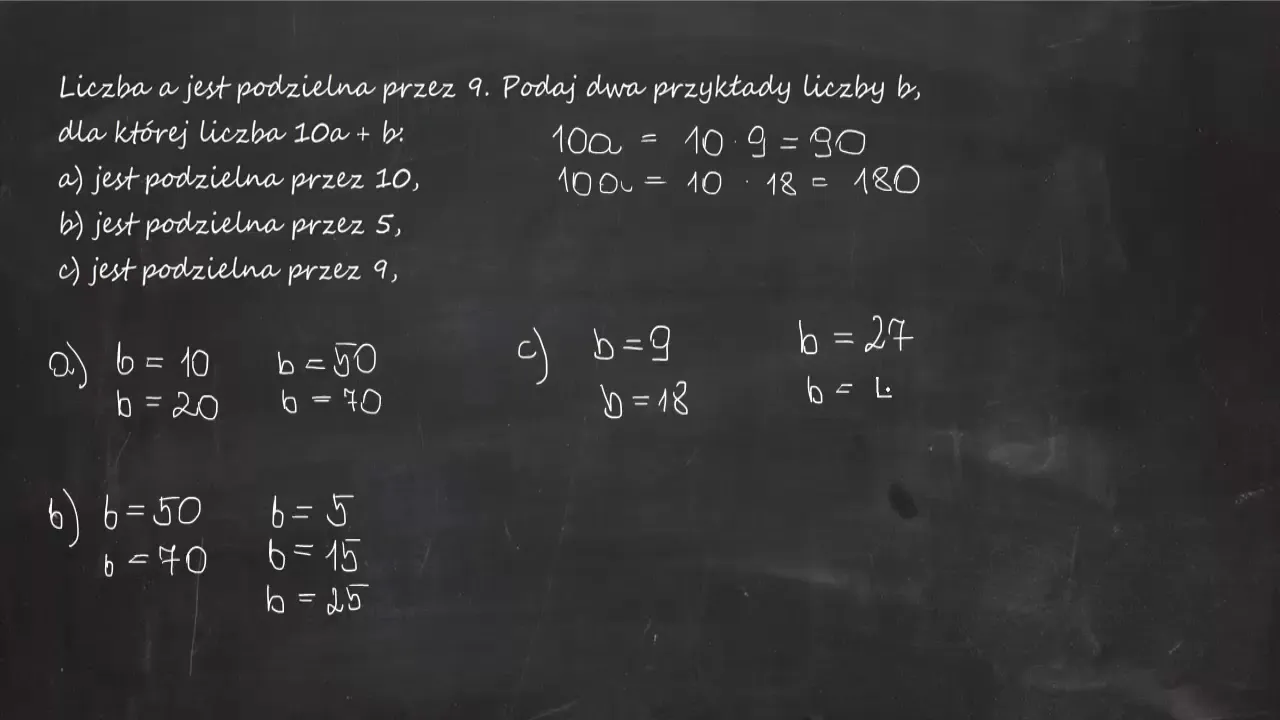 Liczba a jest podzielna przez 9. Podaj dwa przykłady liczby b,
dla której liczba 10a + b:
a) jest podzielna przez 10,
b) jest podzielna przez 5,
c) jest podzielna przez 9,
10a = 10 · 9 = 90
10a = 10 · 18 = 180
a) b = 10 b = 50
b = 20 b = 70
c) b = 9 b = 27
b = 18 b =
b) b = 50 b = 5
b = 70 b = 15
b = 25